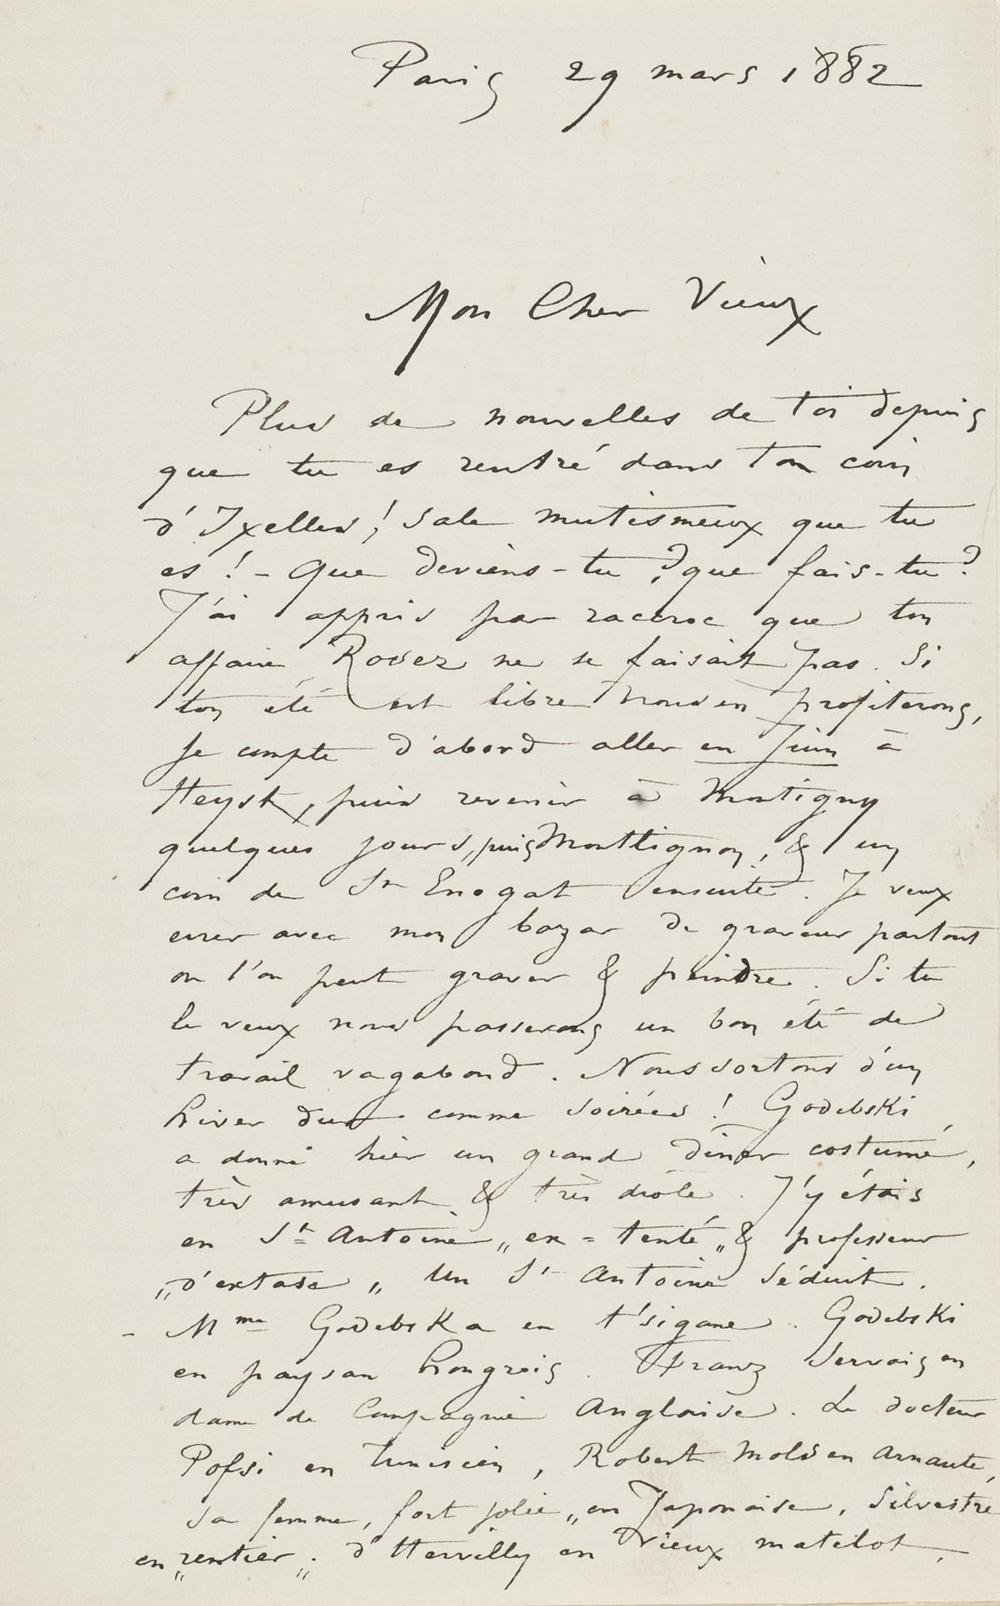 Paris 29 mars 1882
Mon Cher Vieux
Plus de nouvelles de toi depuis
que tu es rentré dans ton coin
d'Ixelles ! sale mutismeux que tu
es ! - Que deviens-tu ? que fais-tu ?
J'ai appris par raccroc que ton
affaire Rodez ne se faisait pas. Si
ton été est libre nous en profiterons,
Je compte d'abord aller en Juin à
Heyst, puis revenir à Montigny
quelques jours, puis Montlignon, & un
coin de St Enogat ensuite. Je veux
errer avec mon bazar de graveur partout
où l'on peut graver & peindre. Si tu
le veux nous passerons un bon été de
travail vagabond. Nous sortons d'un
hiver dur comme soirées ! Godebski
a donné hier un grand dîner costumé,
très amusant & très drôle. J'y étais
en St Antoine „ ex = tenté „ & professeur
„ d'extase „ Un St Antoine séduit.
- Mme Godebska en t'sigane. Godebski
en paysan hongrois. Franz Servais en
dame de Compagnie Anglaise. Le docteur
Possi en tunisien, Robert Mols en arnaute,
sa femme, fort jolie „ en Japonaise, Silvestre
en „ rentier „. d'Hervilly en Vieux matelot,